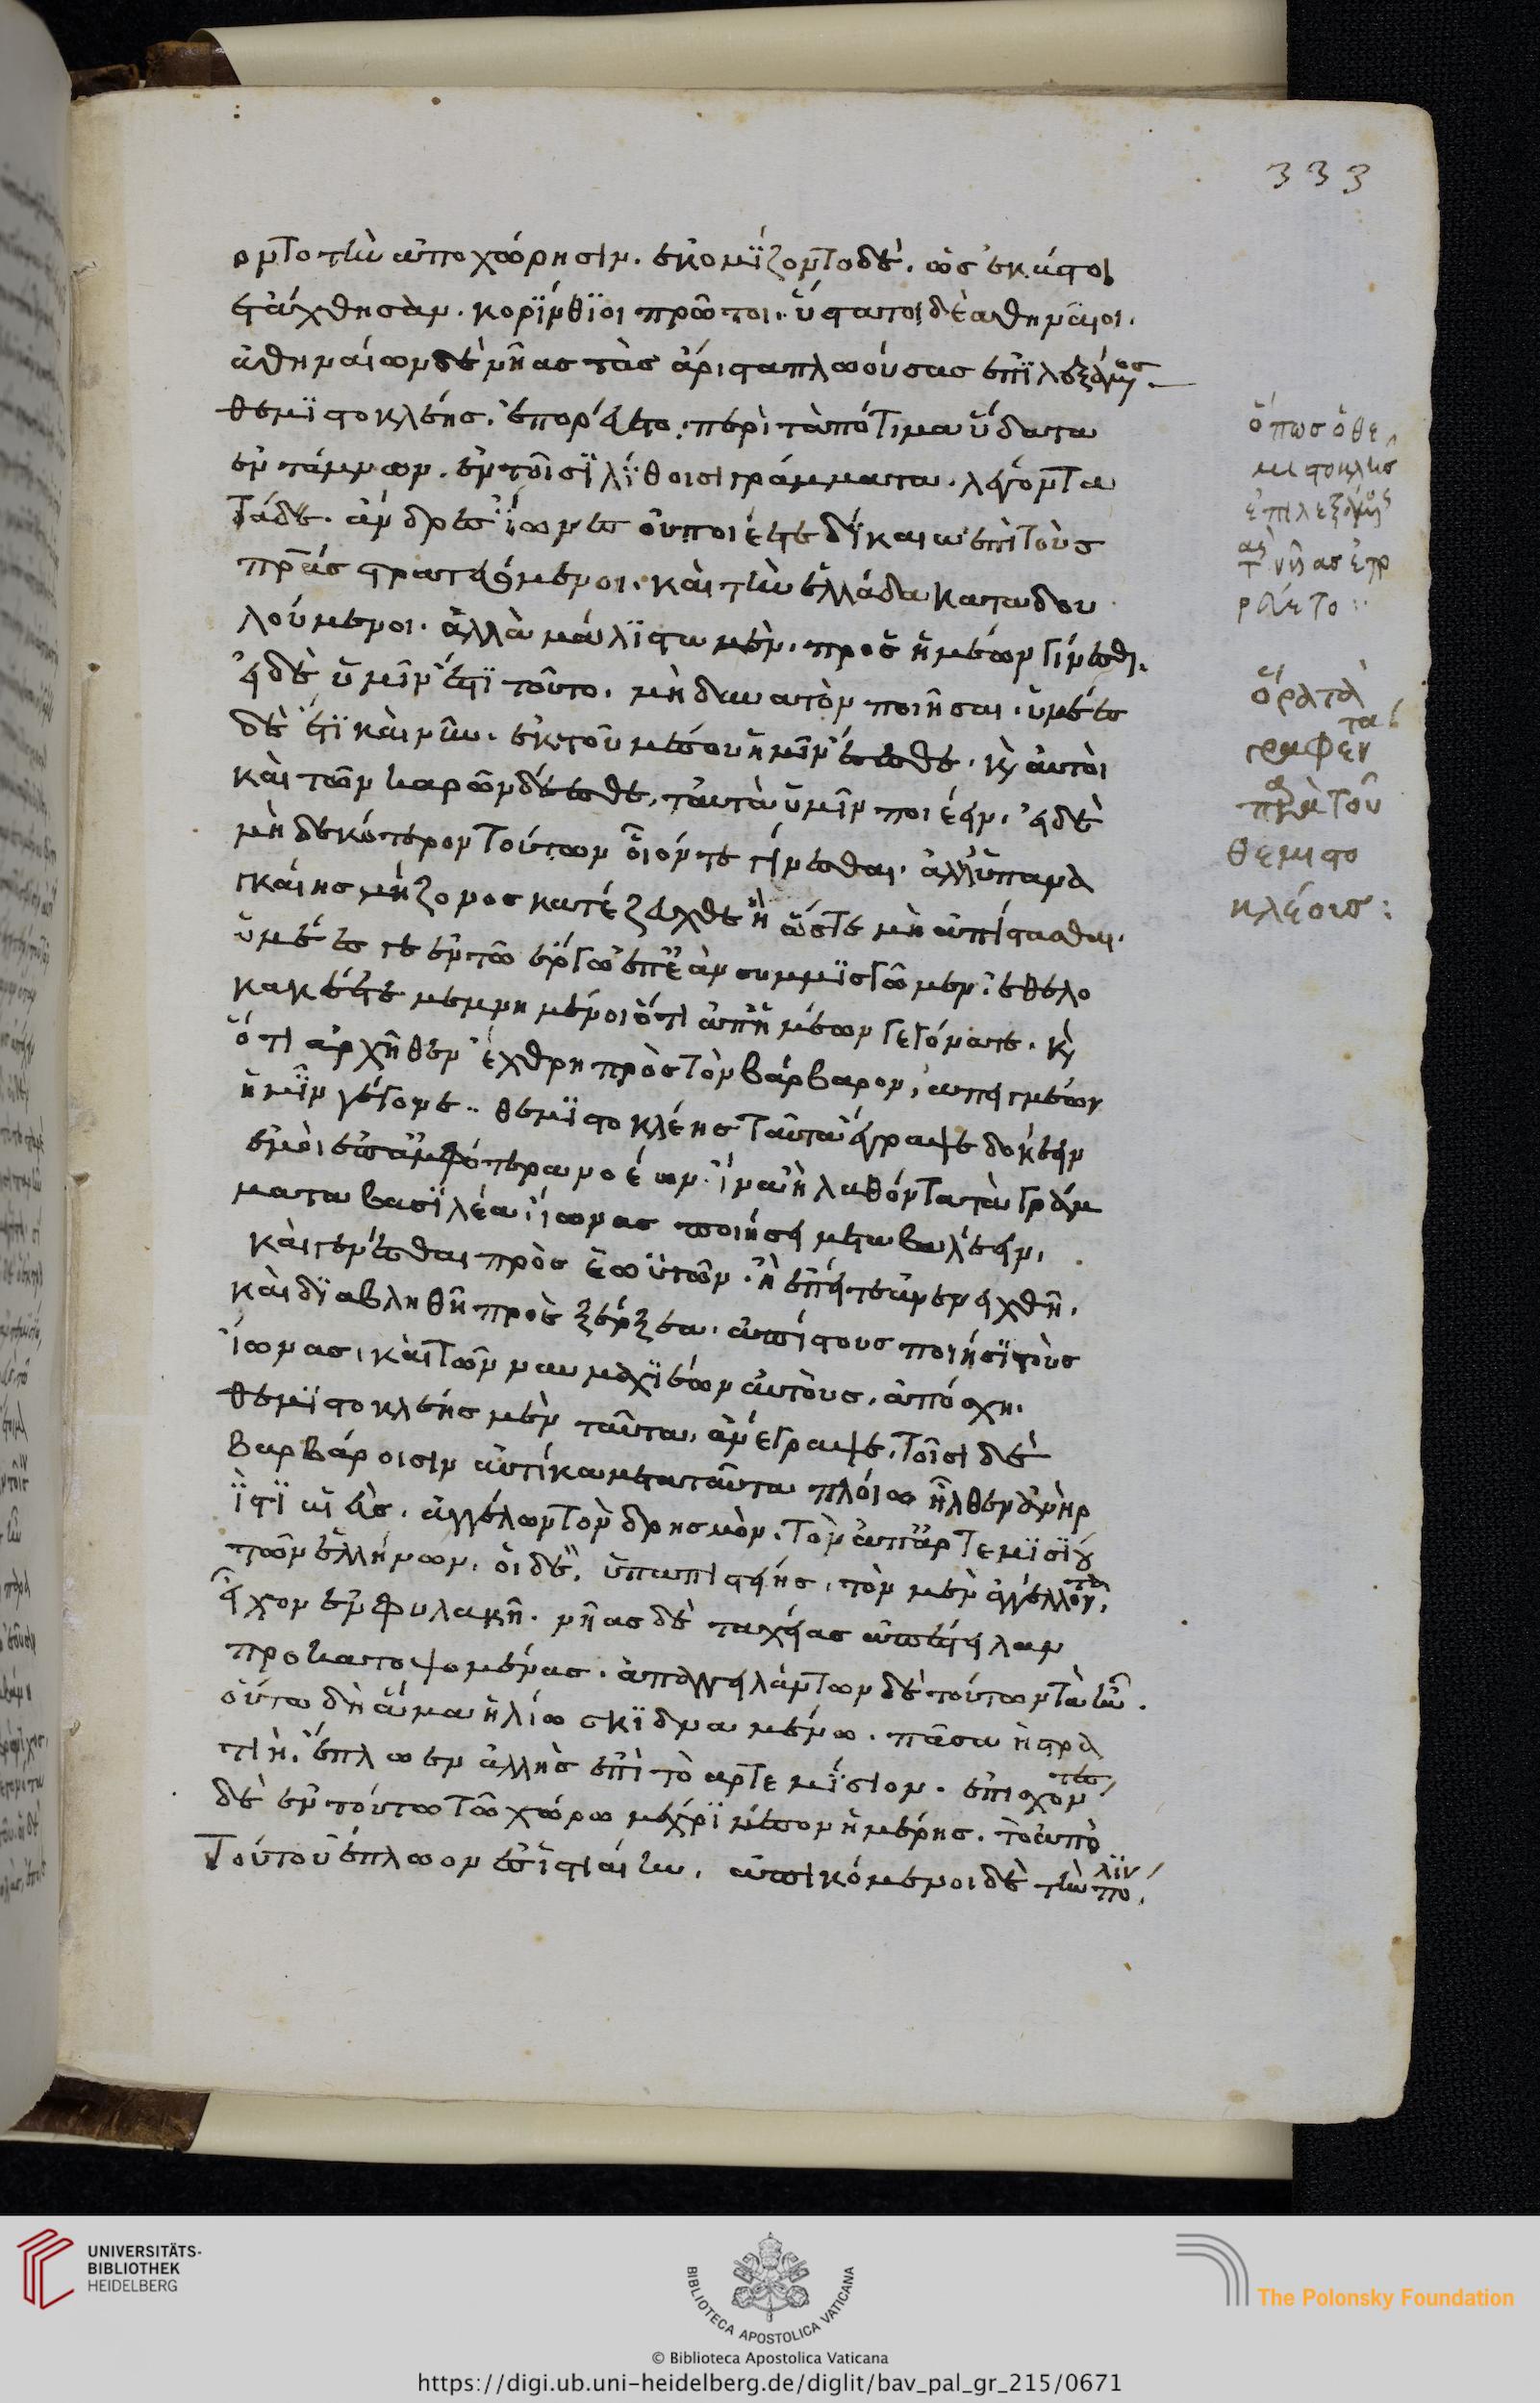 333
οντο τὴν ἀποχώρησιν. ἐκομίζοντο δὲ, ὡς ἕκαστοι
ἐτάχθησαν. κορίνθϊοι πρῶτοι. ὕστατοι δὲ ἀθηναῖοι.
ἀθηναίων δὲ νῆας τὰς ἄριστα πλωούσας ἐπϊλεξάμενος
θεμϊστοκλέης. ἐπορεύετο. περὶ τὰ πότιμα ὕδατα
ἐντάμνων. ἐν τοῖσϊ λίθοισι γράμματα. λέγοντα
τάδε. ἄνδρες ἴωνες οὐ ποιέετε δίκαια ἐπὶ τοὺς
πρας στρατευόμενοι. καὶ τὴν ἑλλάδα καταδου
λούμενοι. ἀλλὰ μάλϊστα μὲν. πρὸς ἡμέων γίνεσθε.
εἰ δὲ ὑμῖν ἐστϊ τοῦτο. μὴ δυνατὸν ποιῆσαι. ὑμέες
δὲ ἔτϊ καὶ νῦν. ἐκ τοῦ μέσου ἡμῖν ἕζεσθε. κ αὐτοὶ
καὶ τῶν καρῶν δέεσθε, ταὐτὰ ὑμῖν ποιέειν. εἰ δὲ
μηδεκότερον τούτων οἷόν τε γίνεσθαι. ἀλλ ὑπ ἀνα
γκαίης μείζονος κατέζευχθε ἢ ὥστε μὴ ἀπίστασθαι.
ὑμέες γε ἐν τῶ ἔργω ἐπεὰν συμμϊσγωμεν. ἐθελο
κακέετε μεμνημένοι ὅτι ἀπ ἡμέων γεγόνατε. κ
ὅτι ἀρχῆθεν ἔχθρη πρὸς τὸν βάρβαρον, ἀπ ἡμέων
ἡμῖν γέγονε. θεμϊστοκλέης ταῦτα ἔγραψε δοκέειν
ἐμοὶ ἐπ ἀμφότερα νοέων. ἵνα ἢ λαθόντα τὰ γράμ
ματα βασϊλέα ἴωνας ποιήσῃ μεταβαλέειν.
καὶ γενέσθαι πρὸς ἑωϋτῶν. ἢ ἐπείτε ἀνενειχθῆ.
καὶ δϊαβληθῆ πρὸς ξέρξεα. ἀπίστους ποιήσϊ τοὺς
ἴωνας. καὶ τῶν ναυμαχϊέων αὐτοὺς. ἀπόσχη.
θεμϊστοκλέης μὲν ταῦτα. ἀνέγραψε. τοῖσι δὲ
βαρβάροισιν αὐτίκα μετὰ ταῦτα πλοίω ἦλθεν ἀνὴρ
ϊστϊαιεὺς. ἀγγέλων τὸν δρησμὸν. τὸν ἀπ ἀρτεμϊσίου
τῶν ἑλλήνων. οἱ δὲ. ὑπ ἀπιστίης. τὸν μὲν ἀγγέλλοντα.
εἶχον ἐν φυλακῆ. νῆας δὲ ταχείας ἀπέστειλαν
προκατοψομένας. ἀπαγγειλάντων δὲ τούτων τὰ ἦν.
οὕτω δὴ ἅμα ἡλίω σκϊδναμένω. πᾶσα ἡ στρα
τιὴ. ἔπλωεν ἁλὴς ἐπὶ τὸ ἀρτεμίσιον. ἐπισχόντες
δὲ ἐν τούτω τῶ χώρω μέχρϊ μέσον ἡμέρης. τὸ ἀπὸ
τούτου ἔπλωον ἐς ἱστιαίην. ἀπικόμενοι δὲ τὴν πόλϊν
ὅπως ὁ θε
μιστοκλῆς
ἐπιλεξάμενος
τὰς νῆας ἐπο
ρεύετο:
ὅρα τὰ
γραφεντα
παρὰ τοῦ
θεμιστο
κλέους:
UNIVERSITÄTS-
BIBLIOTHEK
HEIDELBERG
BIBLIOTECA APOSTOLICA VATICANA
The Polonsky Foundation
© Biblioteca Apostolica Vaticana
https://digi.ub.uni-heidelberg.de/diglit/bav_pal_gr_215/0671